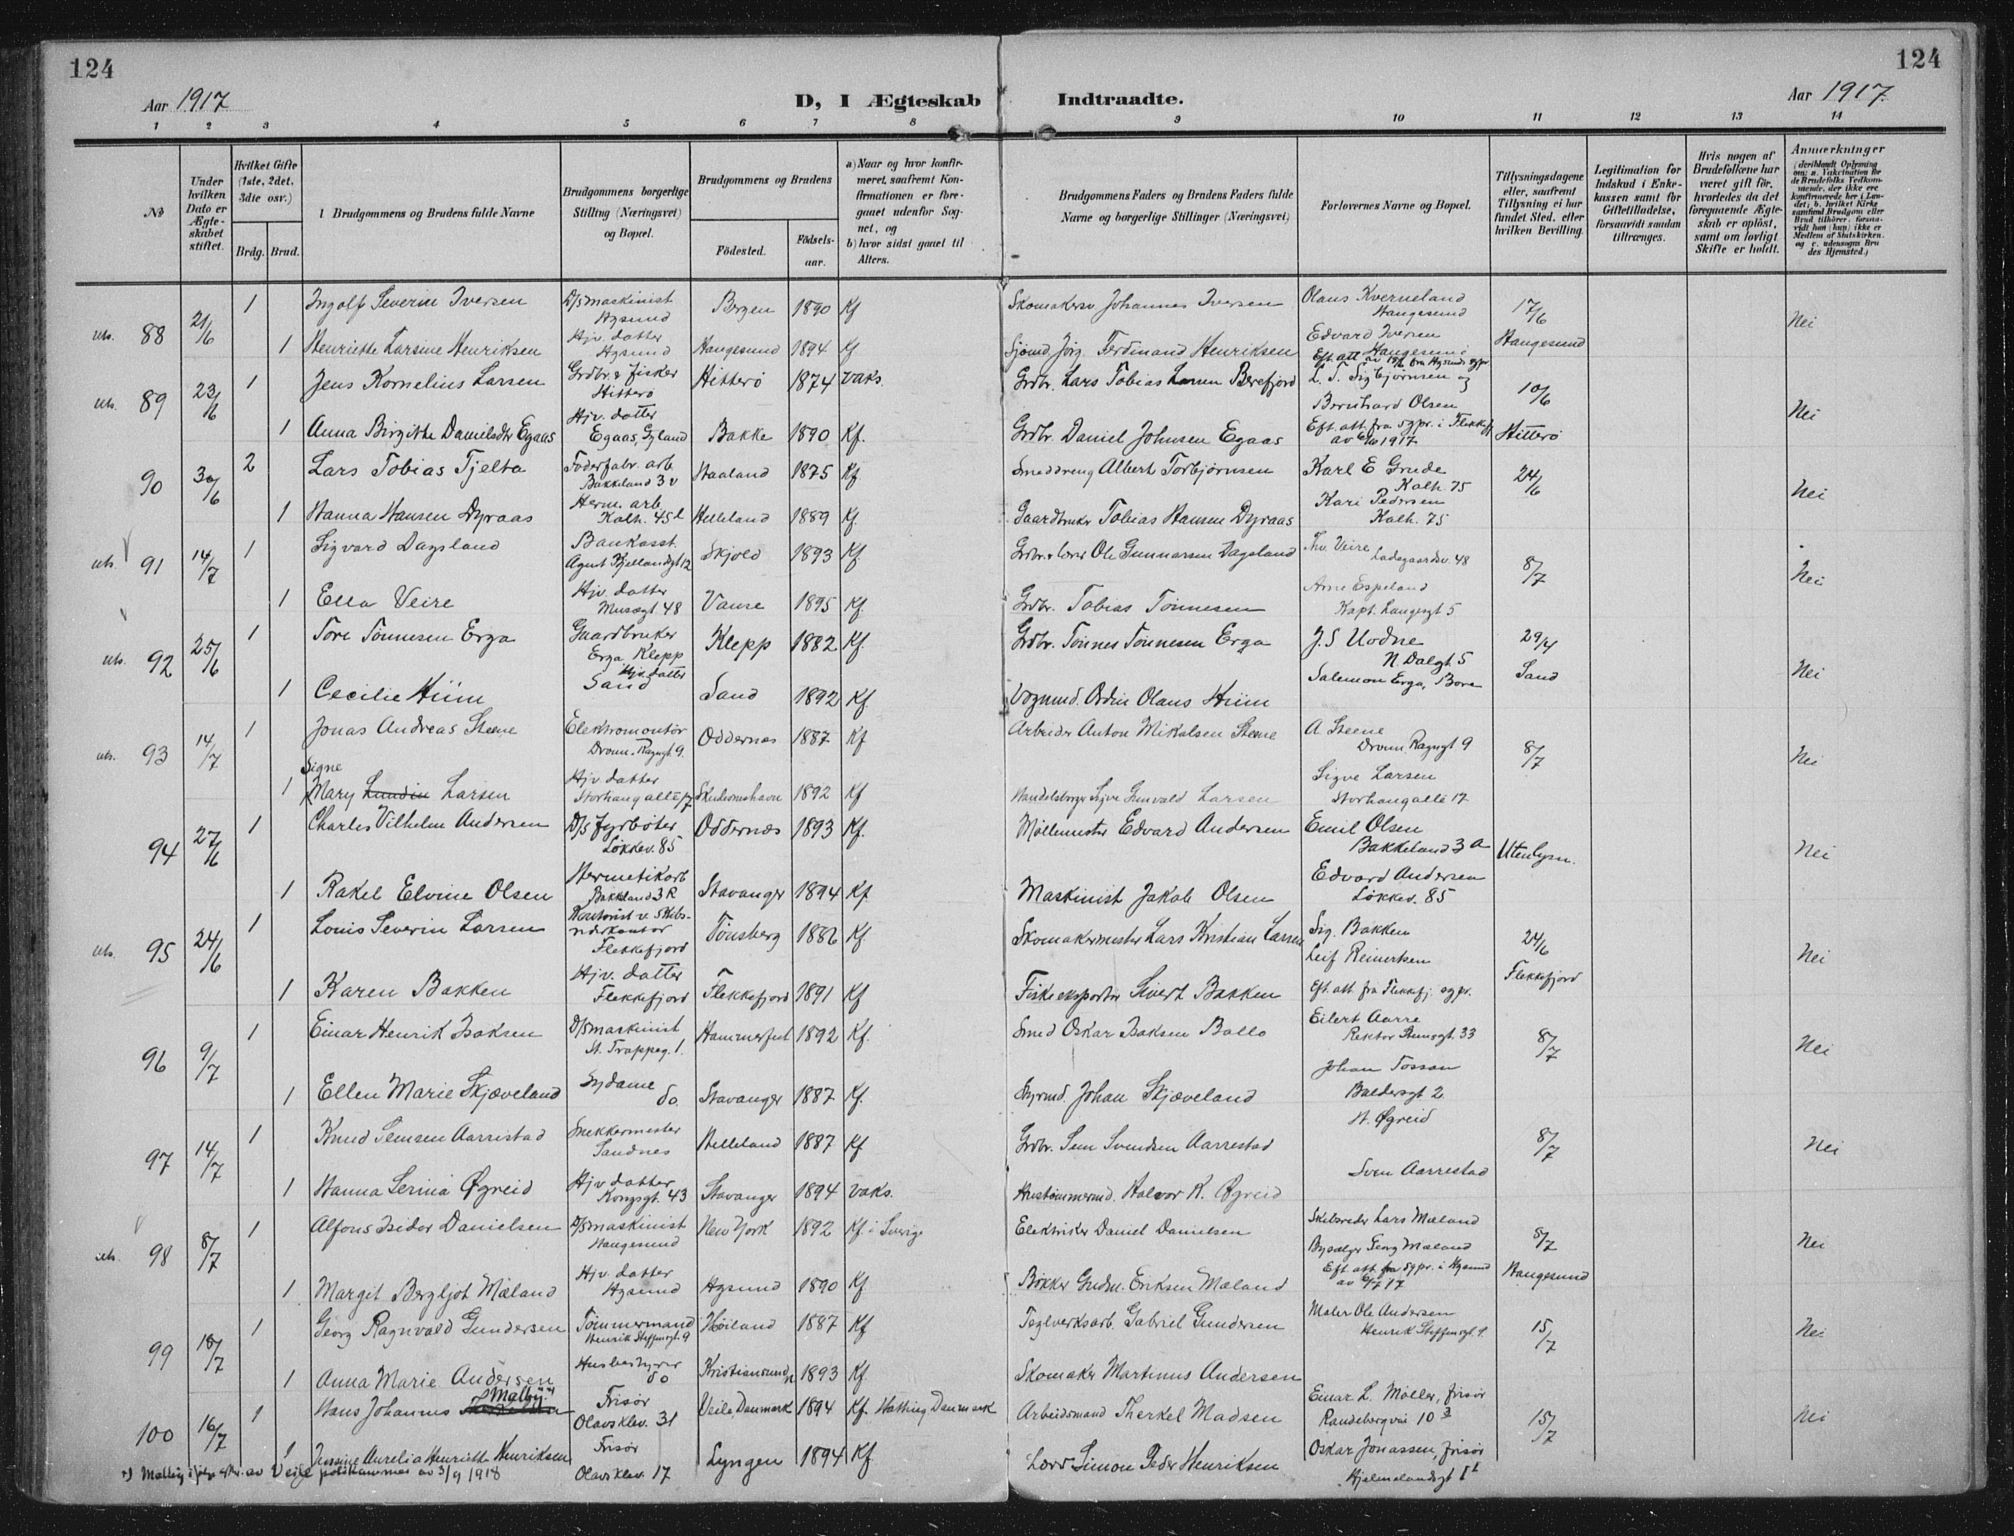 124
124
Aar 1917
D, I Ægteskab Indtraadte.
Aar 1917.
1 2 3 4 5 6 7 8 9 10 11 12 13 14
No
Under hvilken Dato er Ægteskabet stiftet.
Hvilket Gifte (1ste, 2det, 3die osv.)
Brdg. Brud.
1 Brudgommens og Brudens fulde Navne
Brudgommens borgerlige Stilling (Næringsvei) og Bopæl.
Brudgommens og Brudens
Födested.
Födsels-aar.
a) Naar og hvor konfirmeret, saafremt Konfirmationen er foregaaet udenfor Sognet, og
b) hvor sidst gaaet til Alters.
Brudgommens Faders og Brudens Faders fulde Navne og borgerlige Stillinger (Næringsvei)
Forlovernes Navne og Bopæl.
Tillysningsdagene eller, saafremt Tillysning ei har fundet Sted, efter hvilken Bevilling.
Legitimation for Indskud i Enkekassen samt for Giftetilladelse, forsaavidt saadan tiltrænges.
Hvis nogen af Brudefolkene har været gift før, hvorledes da det foregaaende Ægteskab er opløst, samt om lovligt Skifte er holdt.
Anmærkninger
88 21/6 1 Ingolf Severin Iversen D/S maskinist Hgsund Bergen 1890 Kf Skomakersv Johannes Iversen Olaus Kverneland Haugesund 17/6 Nei
1 Henriette Larsine Henriksen Hjv. datter Hgsund Haugesund 1894 Kf Sjömd. Jörg. Ferdinand Henriksen Edvard Iversen Haugesund Haugesund
Eft. att. av 19/6 fra Hgsunds sgpr.
89 23/6 1 Jens Kornelius Larsen Grdbr. & fisker Hitterö Hitterö 1874 vaks. Grdbr. Lars Tobias Larsen Berefjord L. T. Sigbjörnsen og 10/6 Nei
1 Anna Birgitte Danielsdtr Egaas Hjv. datter Egaas, Gyland Bakke 1890 Kf. Grdbr. Daniel Johnsen Egaas Bernhard Olsen Hitterö
Eft. att. fra sgpr. i Flekkefj av 6/6 1917
90 30/6 2 Lars Tobias Tjelta Foderfabr. arb. Bakkeland 3 v Haaland 1875 Kf Smeddreng Albert Torbjörnsen Karl E Grude Kalh. 75 24/6 Nei
1 Hanna Hansen Dyraas Herm. arb. Kalh. 45 Helleland 1889 Kf. Gaardbruker Tobias Hansen Dyraas Kari Pedersen Kalh. 75
91 14/7 1 Sigvard Dagsland Bankasst. Agent Kjellandsgt 12 Skjold 1893 Kf. Grdbr. & lærer Ole Gunnarsen Dagsland Thv. Veire Ladegaardsv. 48 8/7 Nei
1 Ella Veire Hjv. datter Museegt 48 Vanse 1895 Kf Grdbr. Tobias Tönnesen Arne Espeland Kapt. Langesgt 5
92 25/6 1 Tore Tönnesen Erga Gaardbruker Erga Klepp Klepp 1882 Kf. Grdbr. Tönnes Tönnesen Erga J. S. Undne N. Dalgt 5 29/4 Nei
1 Cecilie Hiim Hjv. datter Sand Sand 1892 Kf. Vognmd. Ordin Olaus Hiim Salemon Erga, Bore Sand
93 14/7 1 Jonas Andreas Steene Elektromontör Dronn. Ragngt 9. Oddernes 1887 Kf Arbeider Anton Mikalsen Steene A Steene Dronn Ragngt 9 8/7 Nei
1 Signe Mary Larsen Hjv datter Storhaug allé 17 Skudesneshavn 1892 Kf Handelsborger Sigve Gunvald Larsen Sigve Larsen Storhaugallé 17
94 27/6 1 Charles Vilhelm Andersen D/S fyrböter Løkkev. 85 Oddernes 1893 Kf. Møllemester Edvard Andersen Emil Olsen Bakkeland 3 a Utenlysn. Nei
1 Rakel Elvine Olsen Hermetikarb Bakkeland 3 R Stavanger 1894 Kf Maskinist Jakob Olsen Edvard Andersen Løkkev. 85
95 24/6 1 Louis Severin Larsen Kontorist v. Skibsrederkontor Flekkefjord Tönsberg 1886 Kf. Skomakermester Lars Kristian Larsen Sig. Bakken 24/6 Nei
1 Karen Bakken Hjv. datter Flekkefjord Flekkefjord 1891 Kf Fiskeeksportör Sivert Bakken Leif Reinertsen Flekkefjord
Eft. att. fra Flekkefj. sgpr.
96 9/7 1 Einar Henrik Isaksen D/S maskinist St. Trappeg. 1. Hammerfest 1892 Kf. Smed Oskar Isaksen Ballo Eilert Aarre Rektor Stensgt. 33 8/7 Nei
1 Ellen Marie Skjæveland Sydame do. Stavanger 1887 Kf. Styrmd. Johan Skjæveland Johan Tossan Baldersgt 2
97 14/7 1 Knud Semsen Aarrestad Snekkermester Sandnes Helleland 1887 Kf Grdbr. Sem Svendsen Aarrestad H. Øgreid 8/7 Nei
1 Hanna Serina Øgreid Hjv datter Kongsgt. 43 Stavanger 1894 vaks. Hustømmermd. Halvor K. Øgreid Sven Aarrestad
98 8/7 1 Alfons Isidor Danielsen D/S maskinist Haugesund New York 1892 Kf. i Sverige Elektriker Daniel Danielsen Skibsreder Lars Mæland 8/7 Nei
1 Margit Bergljot Mæland Hjv. datter Hgsund Hgsund 1890 Kf. Bökker Gudm. Eriksen Mæland Byselger Georg Mæland Haugesund
Eft. att fra sgpr. i Hgsund av 9/7 17
99 18/7 1 Georg Ragnvald Gundersen Tömmermand Henrik Steffensgt. 9 Höiland 1887 Kf Teglverksarb. Gabriel Gundersen Maler Ole Andersen Henrik Steffensgt. 9. 15/7 Nei
1 Anna Marie Andersen Husbestyrer do Kristiansund N 1893 Kf. Skomaker Martinus Andersen
100 16/7 1 Hans Johannes Malby *) Frisör Olavsklev. 31 Veile, Danmark 1894 Kf. Hatting Danmark Arbeidsmand Therkel Madsen Einar L. Møller, frisör Randebergvei 10 3 15/7 Nei
1 Jensine Aurelia Henriette Henriksen Frisör Olavsklev. 17 Lyngen 1894 Kf. Lærer Simon Peder Henriksen Oskar Jonassen, frisör Hjelmelandsgt 1
*) Malby ifølge skr. av Veile av 3/9 1918